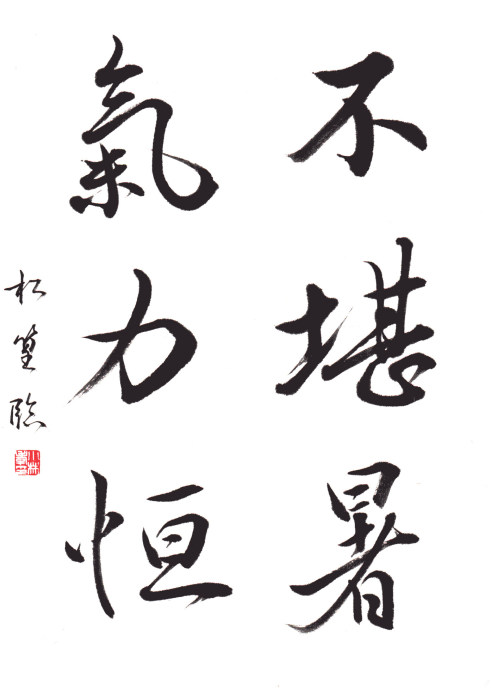 不堪暑
氣力恒
松篁臨